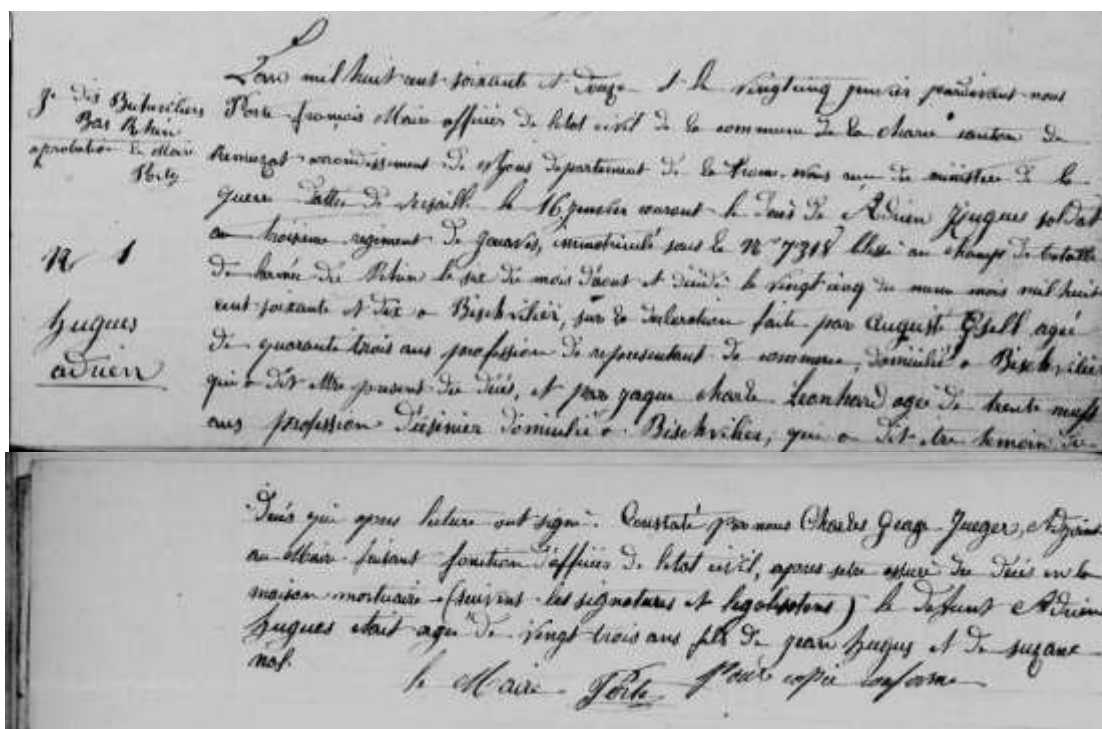 L'an mil huit cent soixante et douze et le vingt cinq janvier pardevant nous
Porte françois Maire officier de letat civil de la commune de la charce canton de
Remuzat arrondissement de Nyons departement de la Drome. avons reçu du ministère de la
guerre datté de versaille le 16 janvier courant le deces de Adrien Hugues soldat
au troisieme regiment de zouaves, immatriculé sous le N° 7318 blessé au champs de bataille
de larmée du Rhin le six du mois d'aout et décédé le vingt cinq du meme mois mil huit
cent soixante et dix a Bischvilier, sur la declaration faite par auguste Gsell agée
de quarante trois ans profession de representant de commerce, domicilié a Bischvilier
qui a dit etre present du décés, et par jaque charle Leonhard agée de trente neuf
ans profession d'uisinier domicilié a Bischvilier, qui a dit etre temoin du
je dis Bischviliers
Bas Rhin
aprobation le Maire
Porte
N 1
hugues
adrien
décés qui apres lecture ont signé. Constaté par nous Charles George Jaeger, Adjoint
au Maire faisant fonction d'afficier de letat civil, apres setre assuré du décés en la
maison mortuaire (suivent les signatures et legalisations) le defunt Adrien
hugues etait agée de vingt trois ans fils de jean hugues et de suzane
le Maire Porte Pour copie conforme